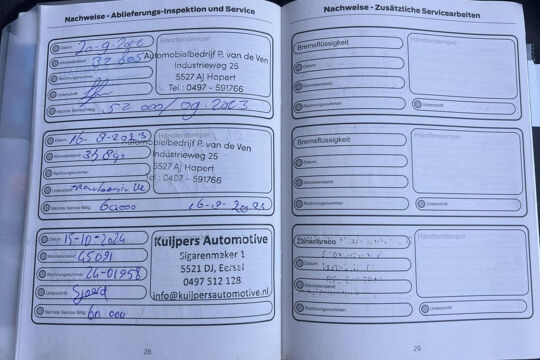 Nachweise - Ablieferungs-Inspektion und Service
Datum: 20-9-2022
Händlerstempel
Kilometerstand: 32 805
Automobielbedrijf P. van de Ven
Industrieweg 25
5527 AJ Hapert
Tel : 0497 - 591766
Rechnungsnummer:
Unterschrift:
Nächste Service fällig: 52 000 / 09-2023
Datum: 16-8-2023
Händlerstempel
Automobielbedrijf P. van de Ven
Industrieweg 25
5527 AJ Hapert
Tel : 0497 - 591766
Kilometerstand:
Rechnungsnummer:
Unterschrift:
Nächste Service fällig: 60000
Datum: 15-10-2024
Kilometerstand: 45091
Rechnungsnummer: 24-01958
Unterschrift: Sjoerd
Kuijpers Automotive
Sigarenmaker 1
5521 DJ, Eersel
0497 512 128
info@kuijpersautomotive.nl
Nächste Service fällig: 60 000
28
Nachweise - Zusätzliche Servicearbeiten
Bremsflüssigkeit
Händlerstempel
Datum:
Kilometerstand:
Rechnungsnummer:
Unterschrift:
Bremsflüssigkeit
Händlerstempel
Datum:
Kilometerstand:
Rechnungsnummer:
Unterschrift:
Zahnriemen
Händlerstempel
Datum:
Kilometerstand:
Rechnungsnummer:
Unterschrift:
29